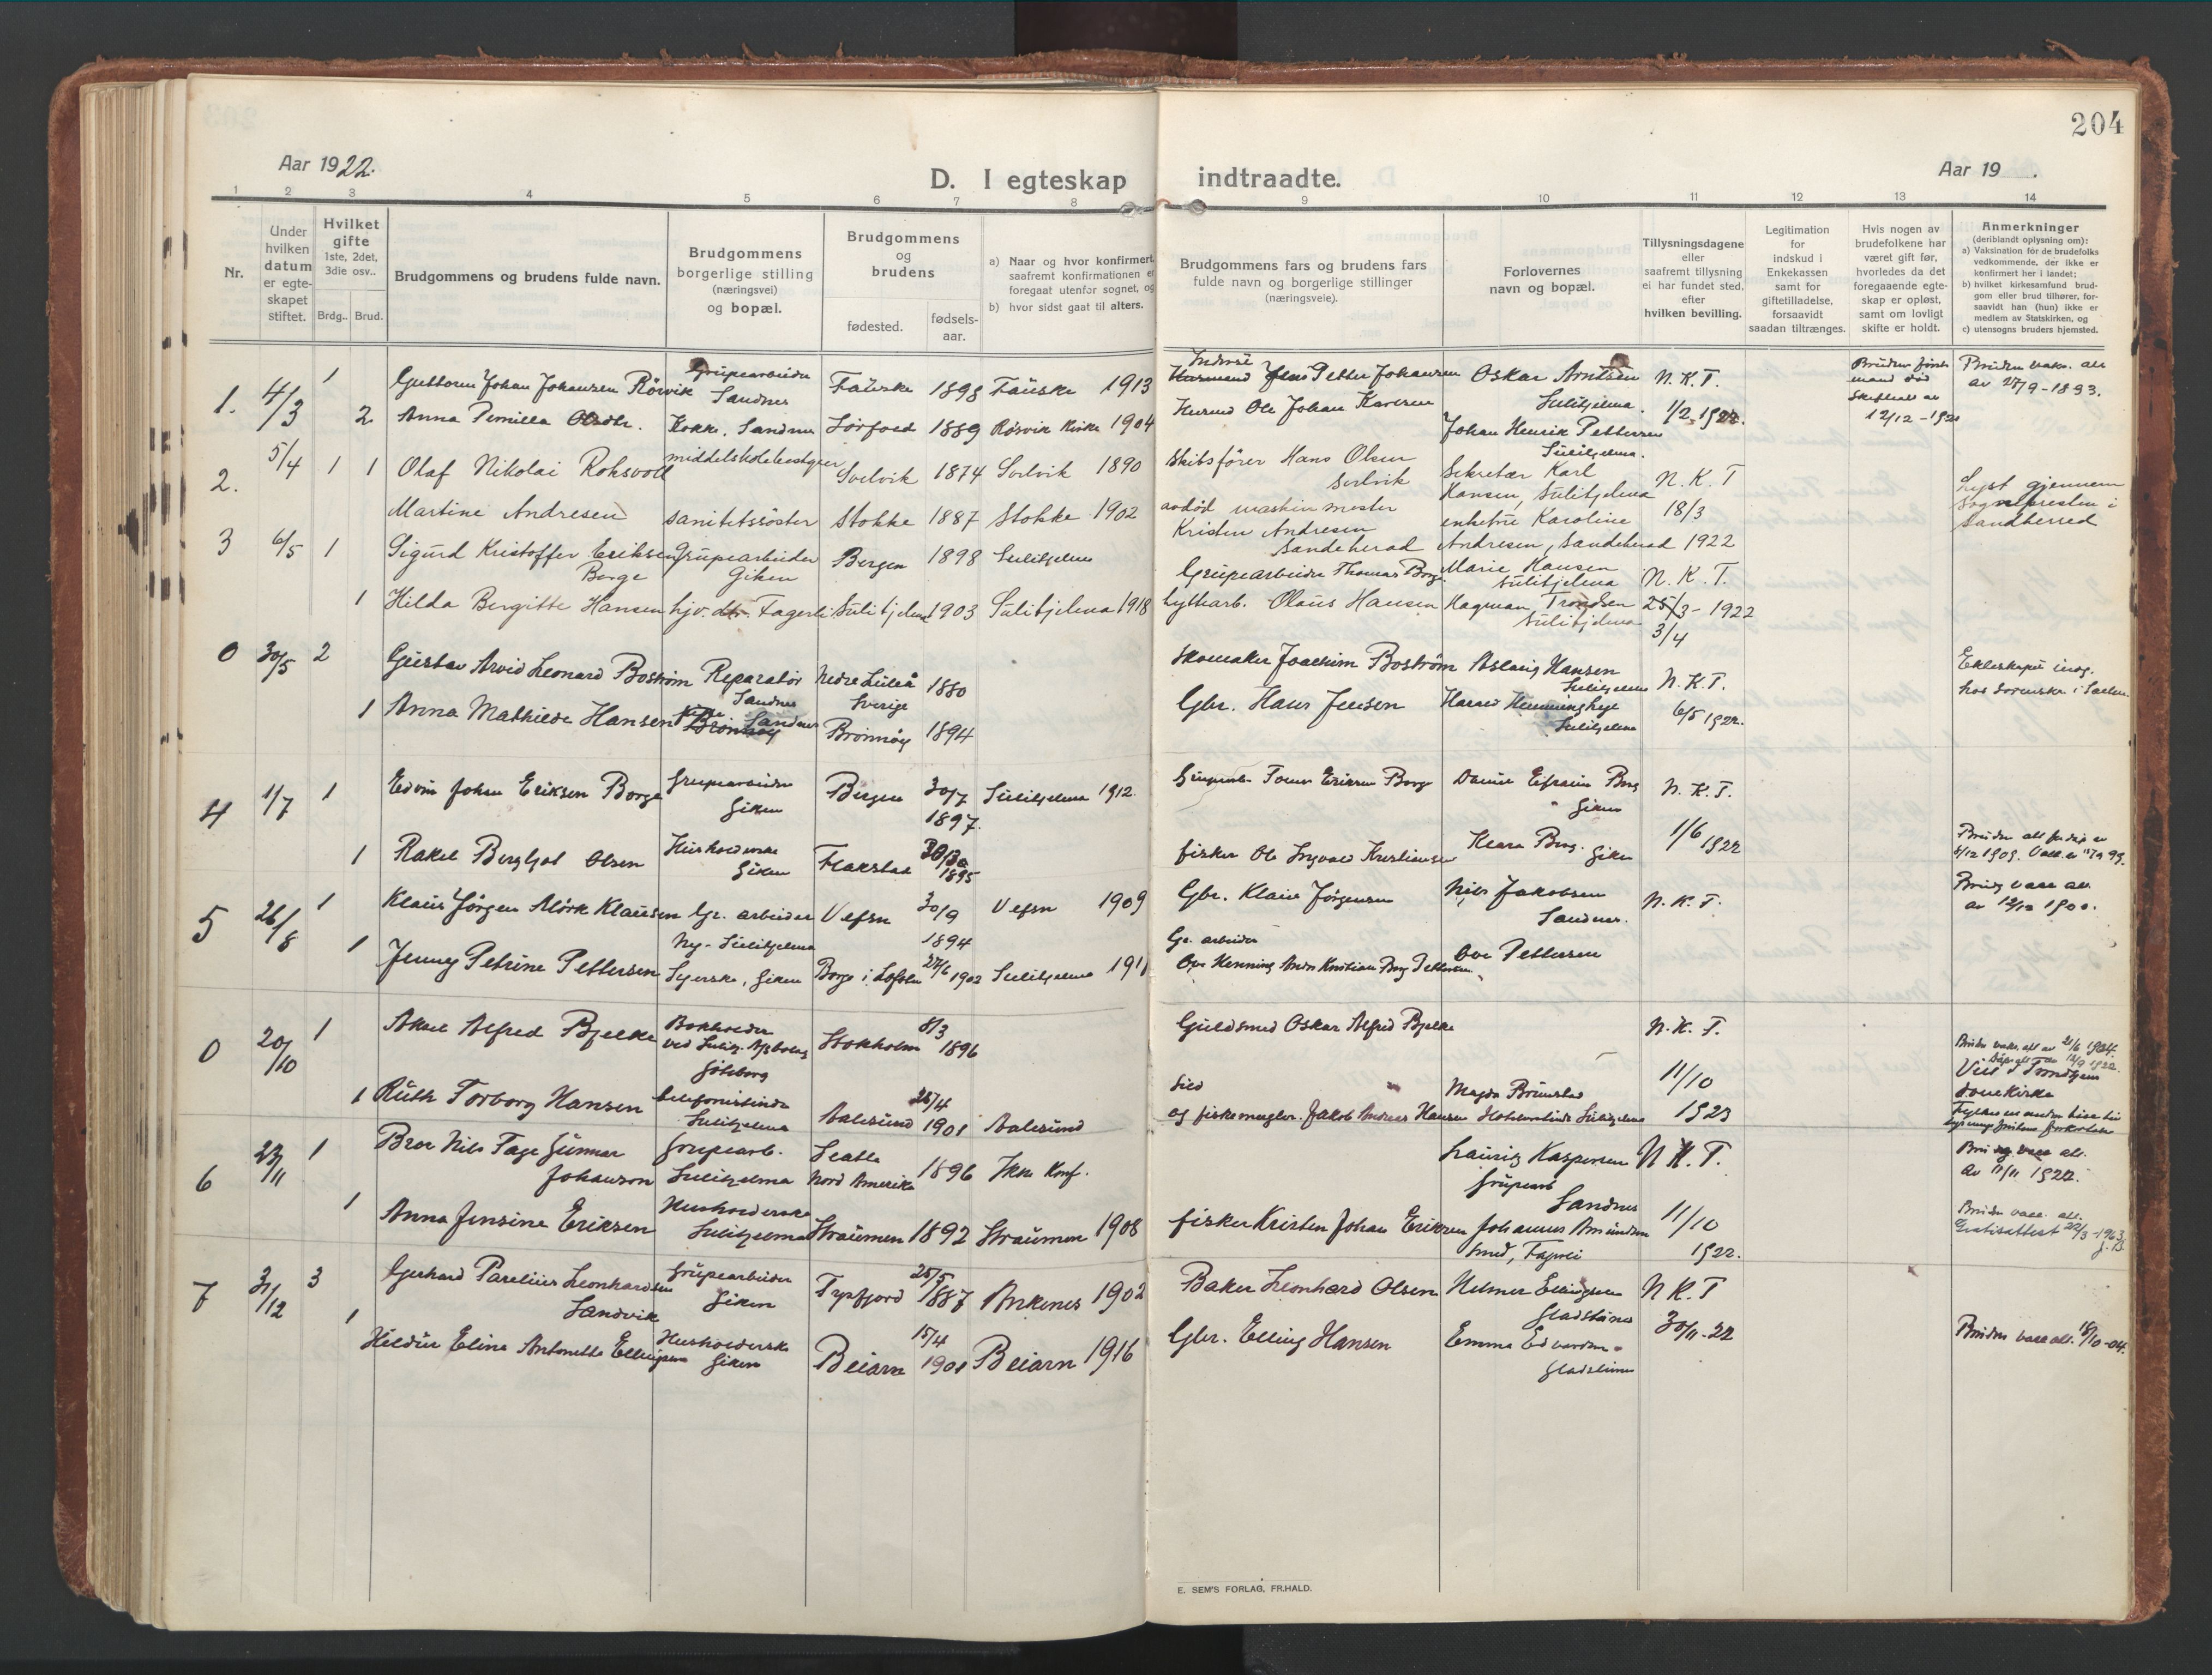 204
Aar 1922.
D. I egteskap indtraadte.
Aar 19 .
1 2 3 4 5 6 7 8 9 10 11 12 13 14
Nr.
Under hvilken datum er egteskapet stiftet.
Hvilket gifte 1ste, 2det, 3die osv..
Brdg.. Brud.
Brudgommens og brudens fulde navn.
Brudgommens borgerlige stilling (næringsvei) og bopæl.
Brudgommens og brudens
fødested.
fødsels-aar.
a) Naar og hvor konfirmert
saafremt konfirmationen er
foregaat utenfor sognet, og
b) hvor sidst gaat til alters.
Brudgommens fars og brudens fars
fulde navn og borgerlige stillinger
(næringsveie).
Forlovernes
navn og bopæl.
Tillysningsdagene
eller
saafremt tillysning
ei har fundet sted,
efter
hvilken bevilling.
Legitimation
for
indskud i
Enkekassen
samt for
giftetilladelse,
forsaavidt
saadan tiltrænges.
Hvis nogen av
brudefolkene har
været gift før,
hvorledes da det
foregaaende egte-
skap er opløst,
samt om lovligt
skifte er holdt.
Anmerkninger
(deriblandt oplysning om):
a) Vaksination for de brudefolks
vedkommende, der ikke er
konfirmert her i landet;
b) hvilket kirkesamfund brud-
gom eller brud tilhører, for-
saavidt han (hun) ikke er
medlem av Statskirken, og
c) utensogns bruders hjemsted.
1. 4/3 1 Guttorm Johan Johansen Rösvik Grupearbeider Sandnes Fauske 1898 Fauske 1913
Petter Johansen Oskar Arntsen Sulitjelma. N. K. T.
2 Anna Pernilla Kokke, Sandnes Sörfold 1889 Røsvik Kirke 1904
Ole Johan Karlsen Johan Henrik Pettersen Sulitjelma. 1/2 1922.
12/12 - 1921
Bruden vakc. att. av 27/9 - 1893.
2. 5/4 1 1 Olaf Nikolai Roksvoll middelskolebestyrer Svelvik 1874 Svelvik 1890
Skibsfører Hans Olsen Svelvik Sekretær Karl Hansen, Sulitjelma N. K. T
Martine Andresen sanitetssöster Stokke 1887 Stokke 1902
avdød maskinmester Kristen Andresen Sandeherad enkefru Karoline Andresen, Sandeherad 18/3 1922
Lyst gjennem
sognepresten i
Sandherred
3 6/5 1 Sigurd Kristoffer Eriksen Borge Grupearbeider Giken Bergen 1898 Sulitjelma
Grupearbeider Thomas Borge Marie Hansen Sulitjelma N. K. T.
1 Hilda Bergitte Hansen hjv. dtr. Fagerli Sulitjelma 1903 Sulitjelma 1918
hyttearb. Olaus Hansen Hagman Trondsen Sulitjelma 25/3 - 1922
3/4
0 30/5 2 Gustav Arvid Leonard Boström Reparatør Sandnes Nedre Luleå Sverige 1880
Skomaker Joachim Boström Aslaug Hansen Sulitjelma N. K. T.
1 Anna Mathilde Hansen Sandnes Brönnöy 1894
Gbr. Hans Jensen Harald Sulitjelma 6/5 1922.
4 1/7 1 Edvin Johan Eriksen Borge Grupearbeider Giken Bergen 30/7 1897. Sulitjelma 1912.
Tomas Eriksen Borge Daniel Efraim Borg Giken N. K. T.
1 Rakel Bergljot Olsen Husholderske Giken Flakstad 1895
fisker Ole Ingvald Kristiansen Klara Borg. Giken 1/6 1922
5 26/8 1 Klaus Jörgen Mörk Klausen Gr. arbeider Ny-Sulitjelma Vefsn 30/9 1894 Vefsn 1909
Gbr. Klaus Jørgensen Nils Jakobsen Sandnes. N. K. T.
1 Jenny Petrine Pettersen Syerske, Giken Borge i Lofoten 27/6 1902 Sulitjelma
Gr. arbeider
Henning Kristian Borg Pettersen Ove Pettersen
0 20/10 1 Aksel Alfred Bjelke Bokholder Göteborg Stokholm 8/3 1896
Guldsmed Oskar Alfred Bjelke N. K. T.
1 Ruth Torborg Hansen telefonistinde Sulitjelma Aalesund 26/4 1901 Aalesund
Sild
og fiskemægler. Jakob Andreas Hansen Magda Brünstad Sulitjelma 11/10 1923
Viet i Trondhjem
domkirke
6 23/11 1 Bror Nils Tage Gunnar Johanson Grupearb. Sulitjelma Seatle Nord Amerika 1896 Ikke Konf.
Lauritz Kaspersen Grupearb Sandnes N K. T.
av 11/11 1922.
1 Anna Jensine Eriksen Husholderske Sulitjelma Straumen 1892 Straumen 1908
fisker Kristen Johan Eriksen Johannes Amundsen Smed, Fagerli 11/10 1922.
Gratisattest 22/3 -1963
7 31/12 3 Gerhard Parelius Leonhardsen Sandvik Grupearbeider Giken Tysfjord 25/5 1887 Ankenes 1902
Baker Leonhard Olsen Helmer Ellingsen N K. T
1 Hildur Eline Antonette Ellingsen Husholderske Giken Beiarn 15/4 1901 Beiarn 1916
Gbr. Elling Hansen Emma Edvardsen 30/11-22
E. SEM'S FORLAG, FR.HALD.